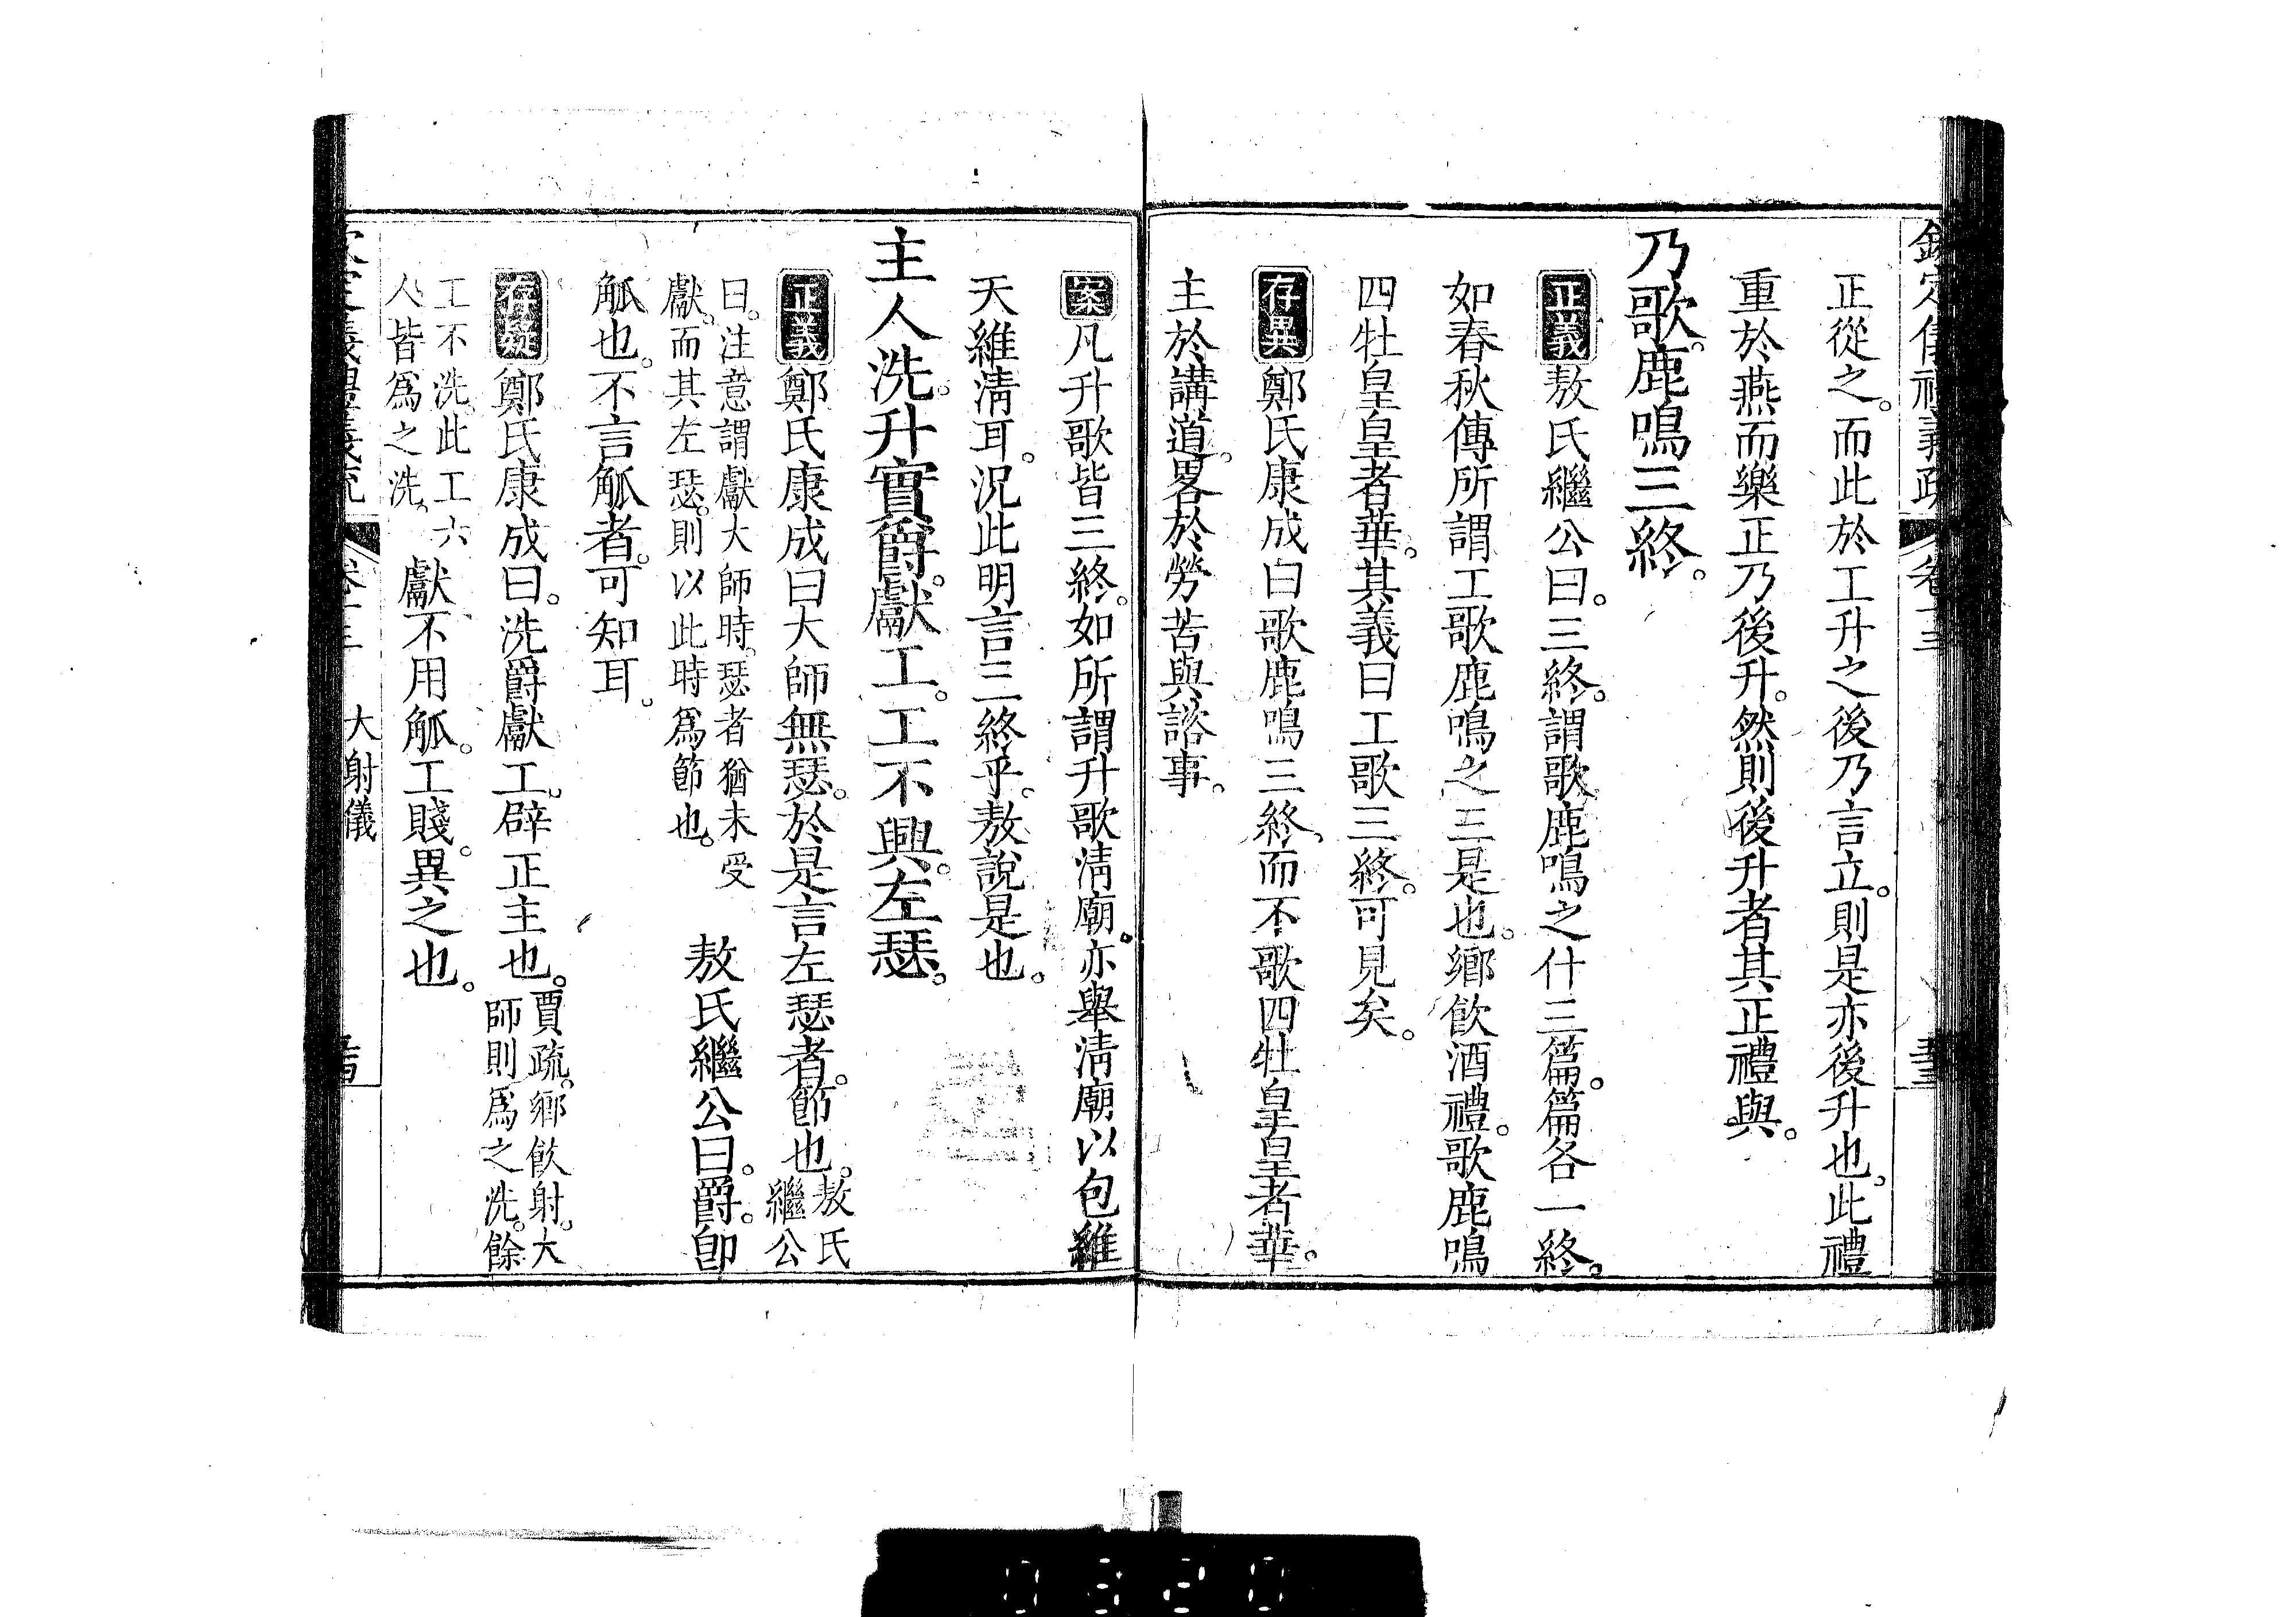 欽定儀禮義疏 卷十三
正從之。而此於工升之後乃言立。則是亦後升也。此禮
重於燕而樂正乃後升。然則後升者其正禮與。
乃歌。鹿鳴三終。
正義 敖氏繼公曰。三終。謂歌鹿鳴之什三篇。篇各一終。
如春秋傳所謂工歌鹿鳴之三是也。鄉飲酒禮。歌鹿鳴
四牡皇皇者華。其義曰工歌三終。可見矣。
存異 鄭氏康成曰歌鹿鳴三終、而不歌四牡皇皇者華。
主於講道。畧於勞苦與諮事。
案 凡升歌皆三終。如所謂升歌淸廟。亦舉淸廟以包維
天維淸耳。況此明言三終乎。敖說是也。
主人洗。升實爵。獻工。工不興。左瑟。
正義 鄭氏康成曰大師無瑟。於是言左瑟者。節也。敖氏繼公
曰。注意謂獻大師時。瑟者猶未受獻。而其左瑟。則以此時爲節也。 敖氏繼公曰。爵。卽
觚也。不言觚者。可知耳。
存疑 鄭氏康成曰。洗爵獻工。辟正主也。賈疏。鄉飲射。大師則爲之洗。餘
工不洗。此工六人皆爲之洗。 獻不用觚。工賤。異之也。
大射儀
0320